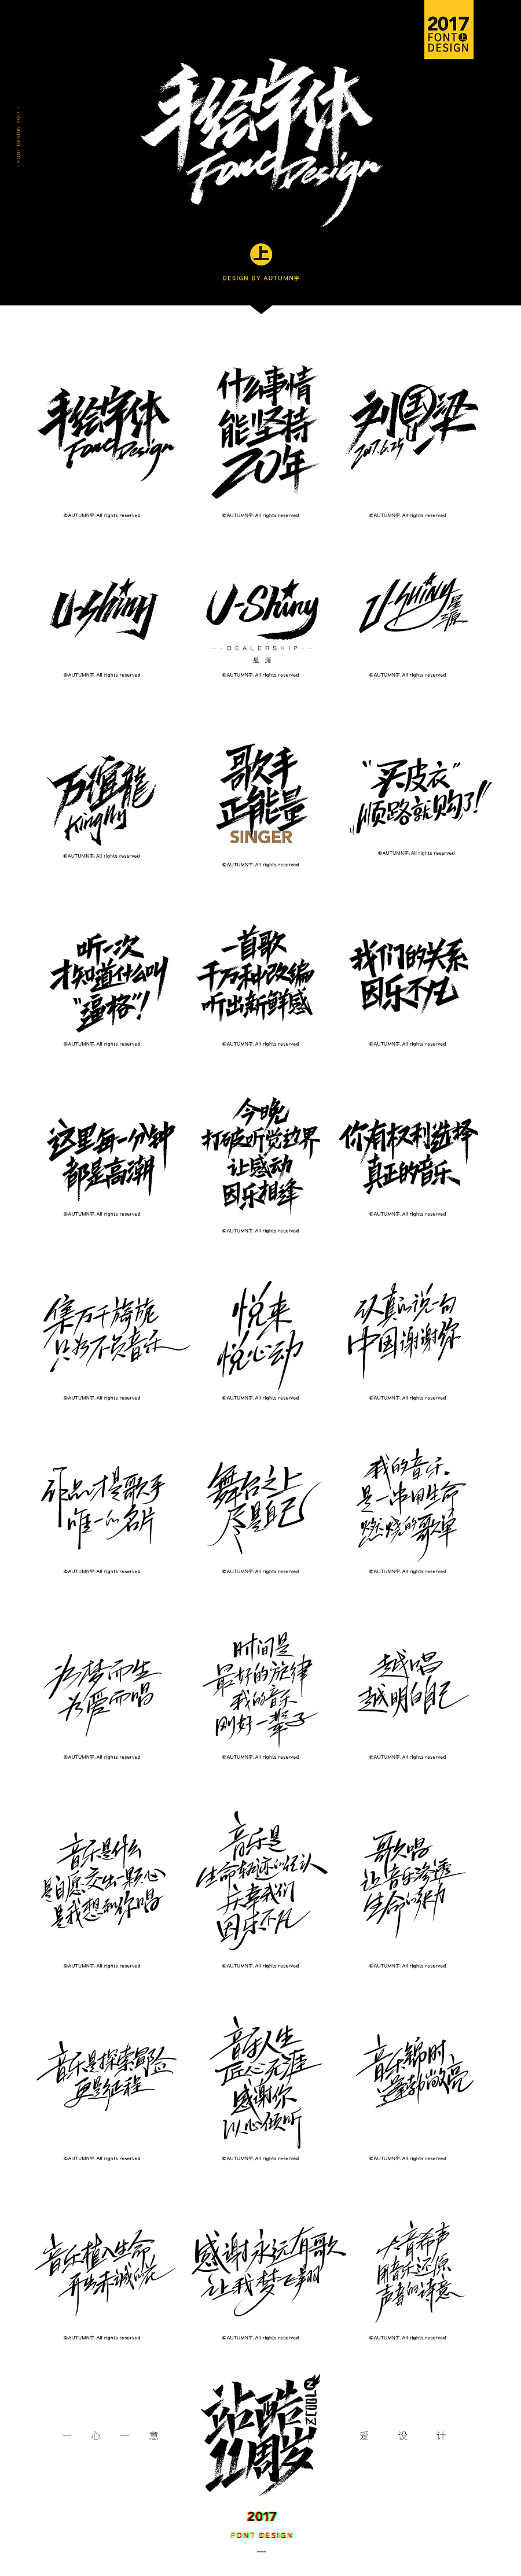 2017
FONT上
DESIGN
- FONT DESIGN 2017 -
手绘字体
Font Design
上
DESIGN BY AUTUMN宇
手绘字体
Font Design
©AUTUMN宇. All rights reserved
什么事情
能坚持
20年
©AUTUMN宇. All rights reserved
刘国梁
2017.6.25
©AUTUMN宇. All rights reserved
U-Shiny
©AUTUMN宇. All rights reserved
U-Shiny
- · DEALERSHIP · -
星 源
©AUTUMN宇. All rights reserved
U-Shiny
星源
©AUTUMN宇. All rights reserved
万谊龍
©AUTUMN宇. All rights reserved
歌手
正能量
SINGER
©AUTUMN宇. All rights reserved
“买皮衣”
顺路就购了!!
©AUTUMN宇. All rights reserved
听一次
才知道什么叫
“逼格”!
©AUTUMN宇. All rights reserved
一首歌
千万种改编
听出新鲜感
©AUTUMN宇. All rights reserved
我们的关系
因乐不凡
©AUTUMN宇. All rights reserved
这里每一分钟
都是高潮
©AUTUMN宇. All rights reserved
今晚
打破听觉边界
让感动
因乐相逢
©AUTUMN宇. All rights reserved
你有权利选择
真正的音乐
©AUTUMN宇. All rights reserved
集万千旖旎
只为不负音乐
©AUTUMN宇. All rights reserved
悦来
悦心动
©AUTUMN宇. All rights reserved
认真的说一句
中国谢谢你
©AUTUMN宇. All rights reserved
作品才是歌手
唯一的名片
©AUTUMN宇. All rights reserved
舞台之上
尽是自己
©AUTUMN宇. All rights reserved
我的音乐
是一串用生命
燃烧的歌单
©AUTUMN宇. All rights reserved
为梦而生
为爱而唱
©AUTUMN宇. All rights reserved
时间是
最好的旋律
我的音乐
刚好一辈子
©AUTUMN宇. All rights reserved
越唱
越明白自己
©AUTUMN宇. All rights reserved
音乐是什么
是自愿交出一颗心
是我想和你唱
©AUTUMN宇. All rights reserved
音乐是
生命轨迹的确认
庆幸我们
因乐不凡
©AUTUMN宇. All rights reserved
歌唱
让音乐渗透
生命的张力
©AUTUMN宇. All rights reserved
音乐是探索冒险
更是征程
©AUTUMN宇. All rights reserved
音乐人生
匠心无涯
感谢你
以心倾听
©AUTUMN宇. All rights reserved
音乐锦时
蓬勃嘹亮
©AUTUMN宇. All rights reserved
音乐植入生命
开出赤诚的花
©AUTUMN宇. All rights reserved
感谢永远有歌
让我梦飞翔
©AUTUMN宇. All rights reserved
大音希声
用音乐还原
声音的诗意
©AUTUMN宇. All rights reserved
一 心 一 意
站酷
ZCOOL
11周岁
爱 设 计
2017
FONT DESIGN